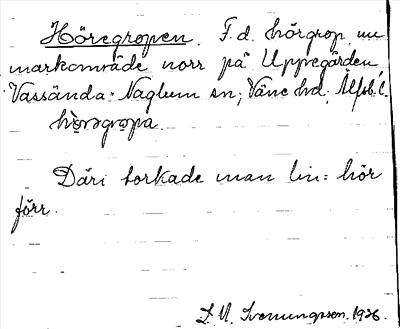 Höregropen. F.d. hörgrop, nu
markområde norr på Uppegården,
Vassända-Naglum sn; Väne hd, Älfsb. l.
hö̀regropa.
Däri torkade man lin = hör
förr.
1926.